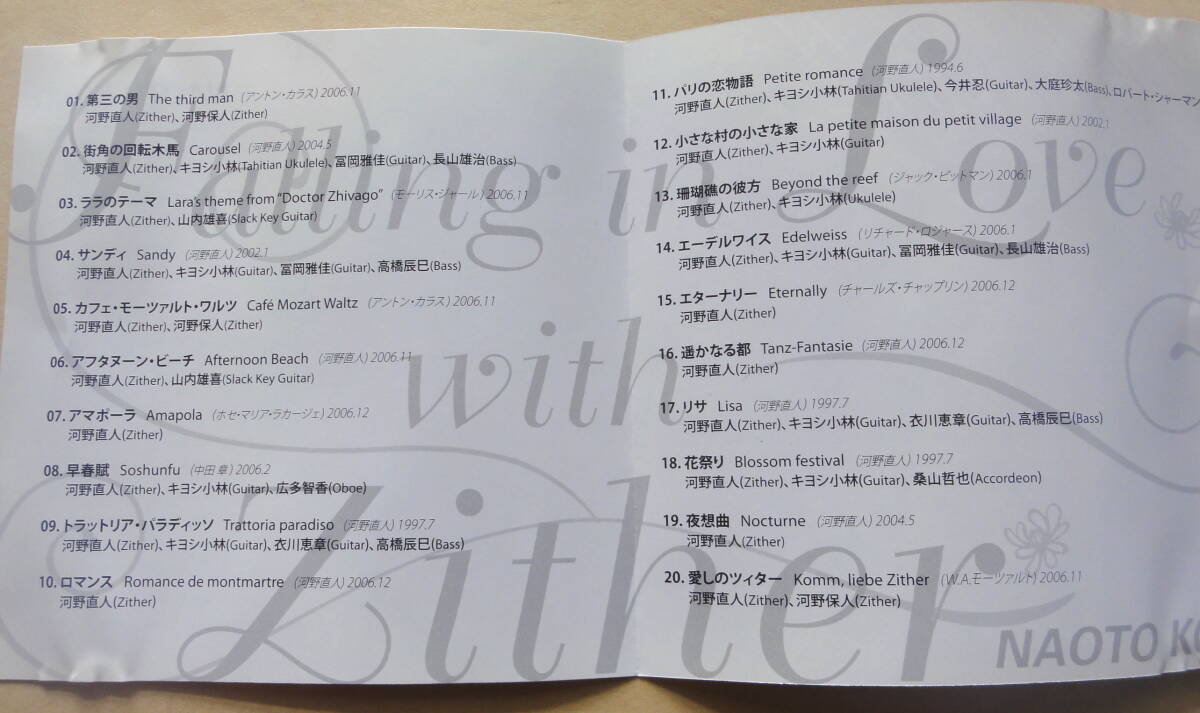 Falling in Love
with
Zither
01. 第三の男 The third man (アントン・カラス) 2006.11
河野直人(Zither)、河野保人(Zither)
02. 街角の回転木馬 Carousel (河野直人) 2004.5
河野直人(Zither)、キヨシ小林(Tahitian Ukulele)、冨岡雅佳(Guitar)、長山雄治(Bass)
03. ララのテーマ Lara's theme from "Doctor Zhivago" (モーリス・ジャール) 2006.11
河野直人(Zither)、山内雄喜(Slack Key Guitar)
04. サンディ Sandy (河野直人) 2002.1
河野直人(Zither)、キヨシ小林(Guitar)、冨岡雅佳(Guitar)、高橋辰巳(Bass)
05. カフェ・モーツァルト・ワルツ Café Mozart Waltz (アントン・カラス) 2006.11
河野直人(Zither)、河野保人(Zither)
06. アフタヌーン・ビーチ Afternoon Beach (河野直人) 2006.11
河野直人(Zither)、山内雄喜(Slack Key Guitar)
07. アマポーラ Amapola (ホセ・マリア・ラカージェ) 2006.12
河野直人(Zither)
08. 早春賦 Soshunfu (中田 章) 2006.2
河野直人(Zither)、キヨシ小林(Guitar)、広多智香(Oboe)
09. トラットリア・パラディッソ Trattoria paradiso (河野直人) 1997.7
河野直人(Zither)、キヨシ小林(Guitar)、衣川恵章(Guitar)、高橋辰巳(Bass)
10. ロマンス Romance de montmartre (河野直人) 2006.12
河野直人(Zither)
11. パリの恋物語 Petite romance (河野直人) 1994.6
河野直人(Zither)、キヨシ小林(Tahitian Ukulele)、今井忍(Guitar)、大庭珍太(Bass)、ロバート・シャーマン
12. 小さな村の小さな家 La petite maison du petit village (河野直人) 2002.1
河野直人(Zither)、キヨシ小林(Guitar)
13. 珊瑚礁の彼方 Beyond the reef (ジャック・ピットマン) 2006.1
河野直人(Zither)、キヨシ小林(Ukulele)
14. エーデルワイス Edelweiss (リチャード・ロジャース) 2006.1
河野直人(Zither)、キヨシ小林(Guitar)、冨岡雅佳(Guitar)、長山雄治(Bass)
15. エターナリー Eternally (チャールズ・チャップリン) 2006.12
河野直人(Zither)
16. 遥かなる都 Tanz-Fantasie (河野直人) 2006.12
河野直人(Zither)
17. リサ Lisa (河野直人) 1997.7
河野直人(Zither)、キヨシ小林(Guitar)、衣川恵章(Guitar)、高橋辰巳(Bass)
18. 花祭り Blossom festival (河野直人) 1997.7
河野直人(Zither)、キヨシ小林(Guitar)、桑山哲也(Accordeon)
19. 夜想曲 Nocturne (河野直人) 2004.5
河野直人(Zither)
20. 愛しのツィター Komm, liebe Zither (W.A.モーツァルト) 2006.11
河野直人(Zither)、河野保人(Zither)
NAOTO